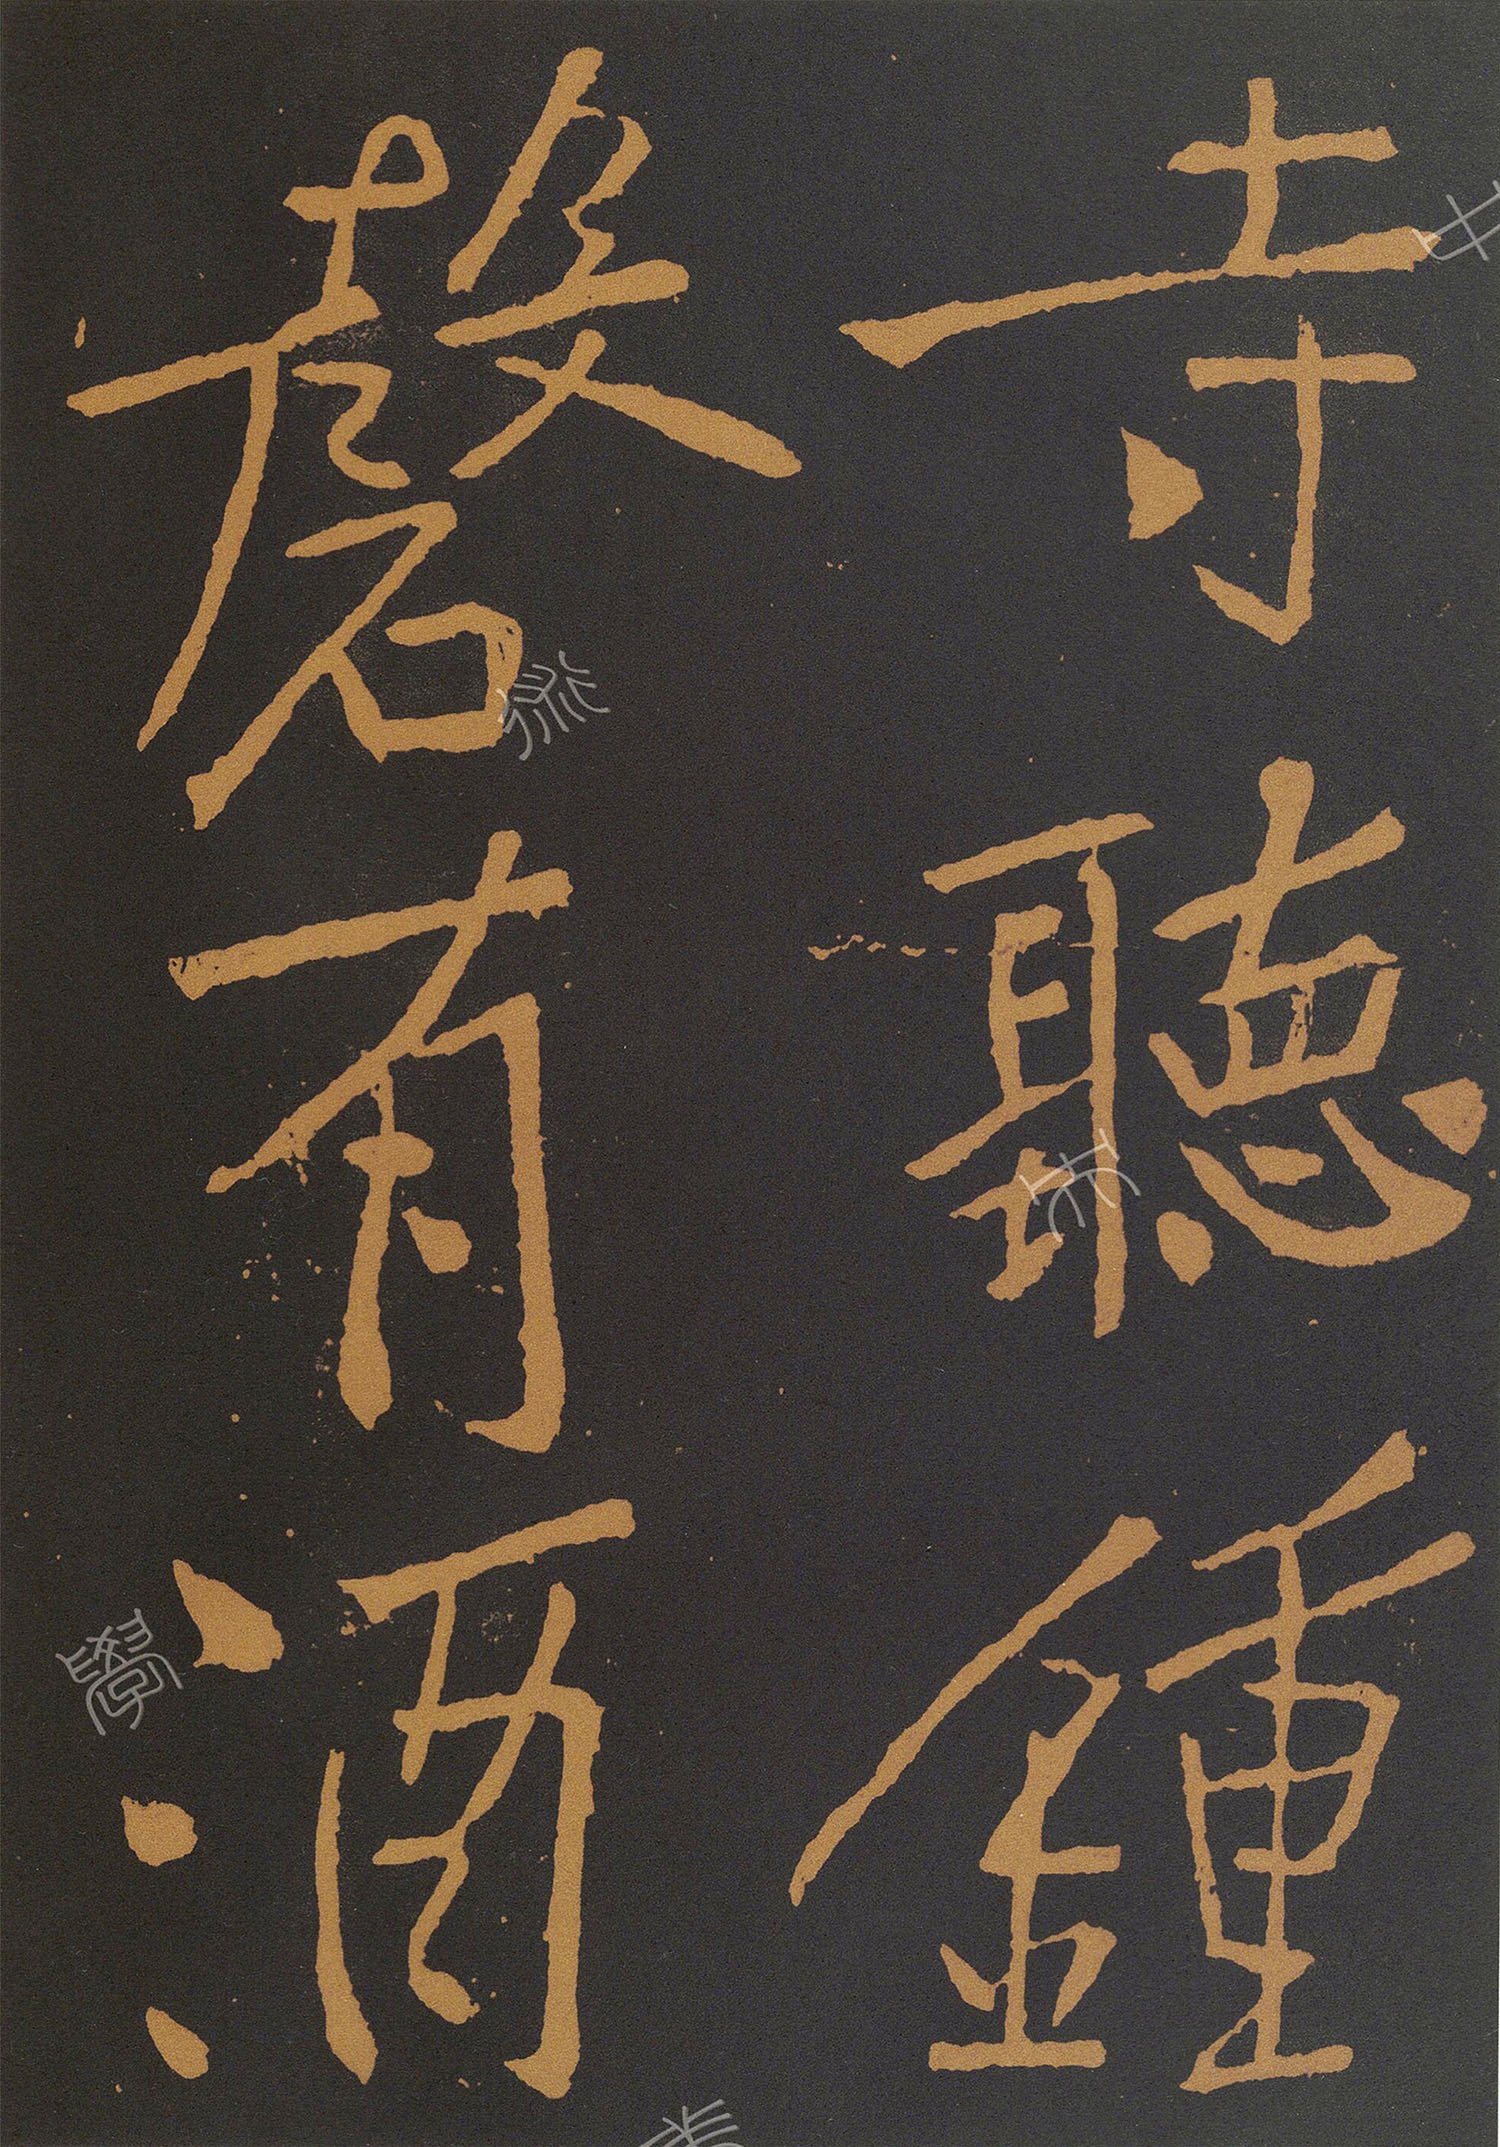 寺聽鍾
磬有酒